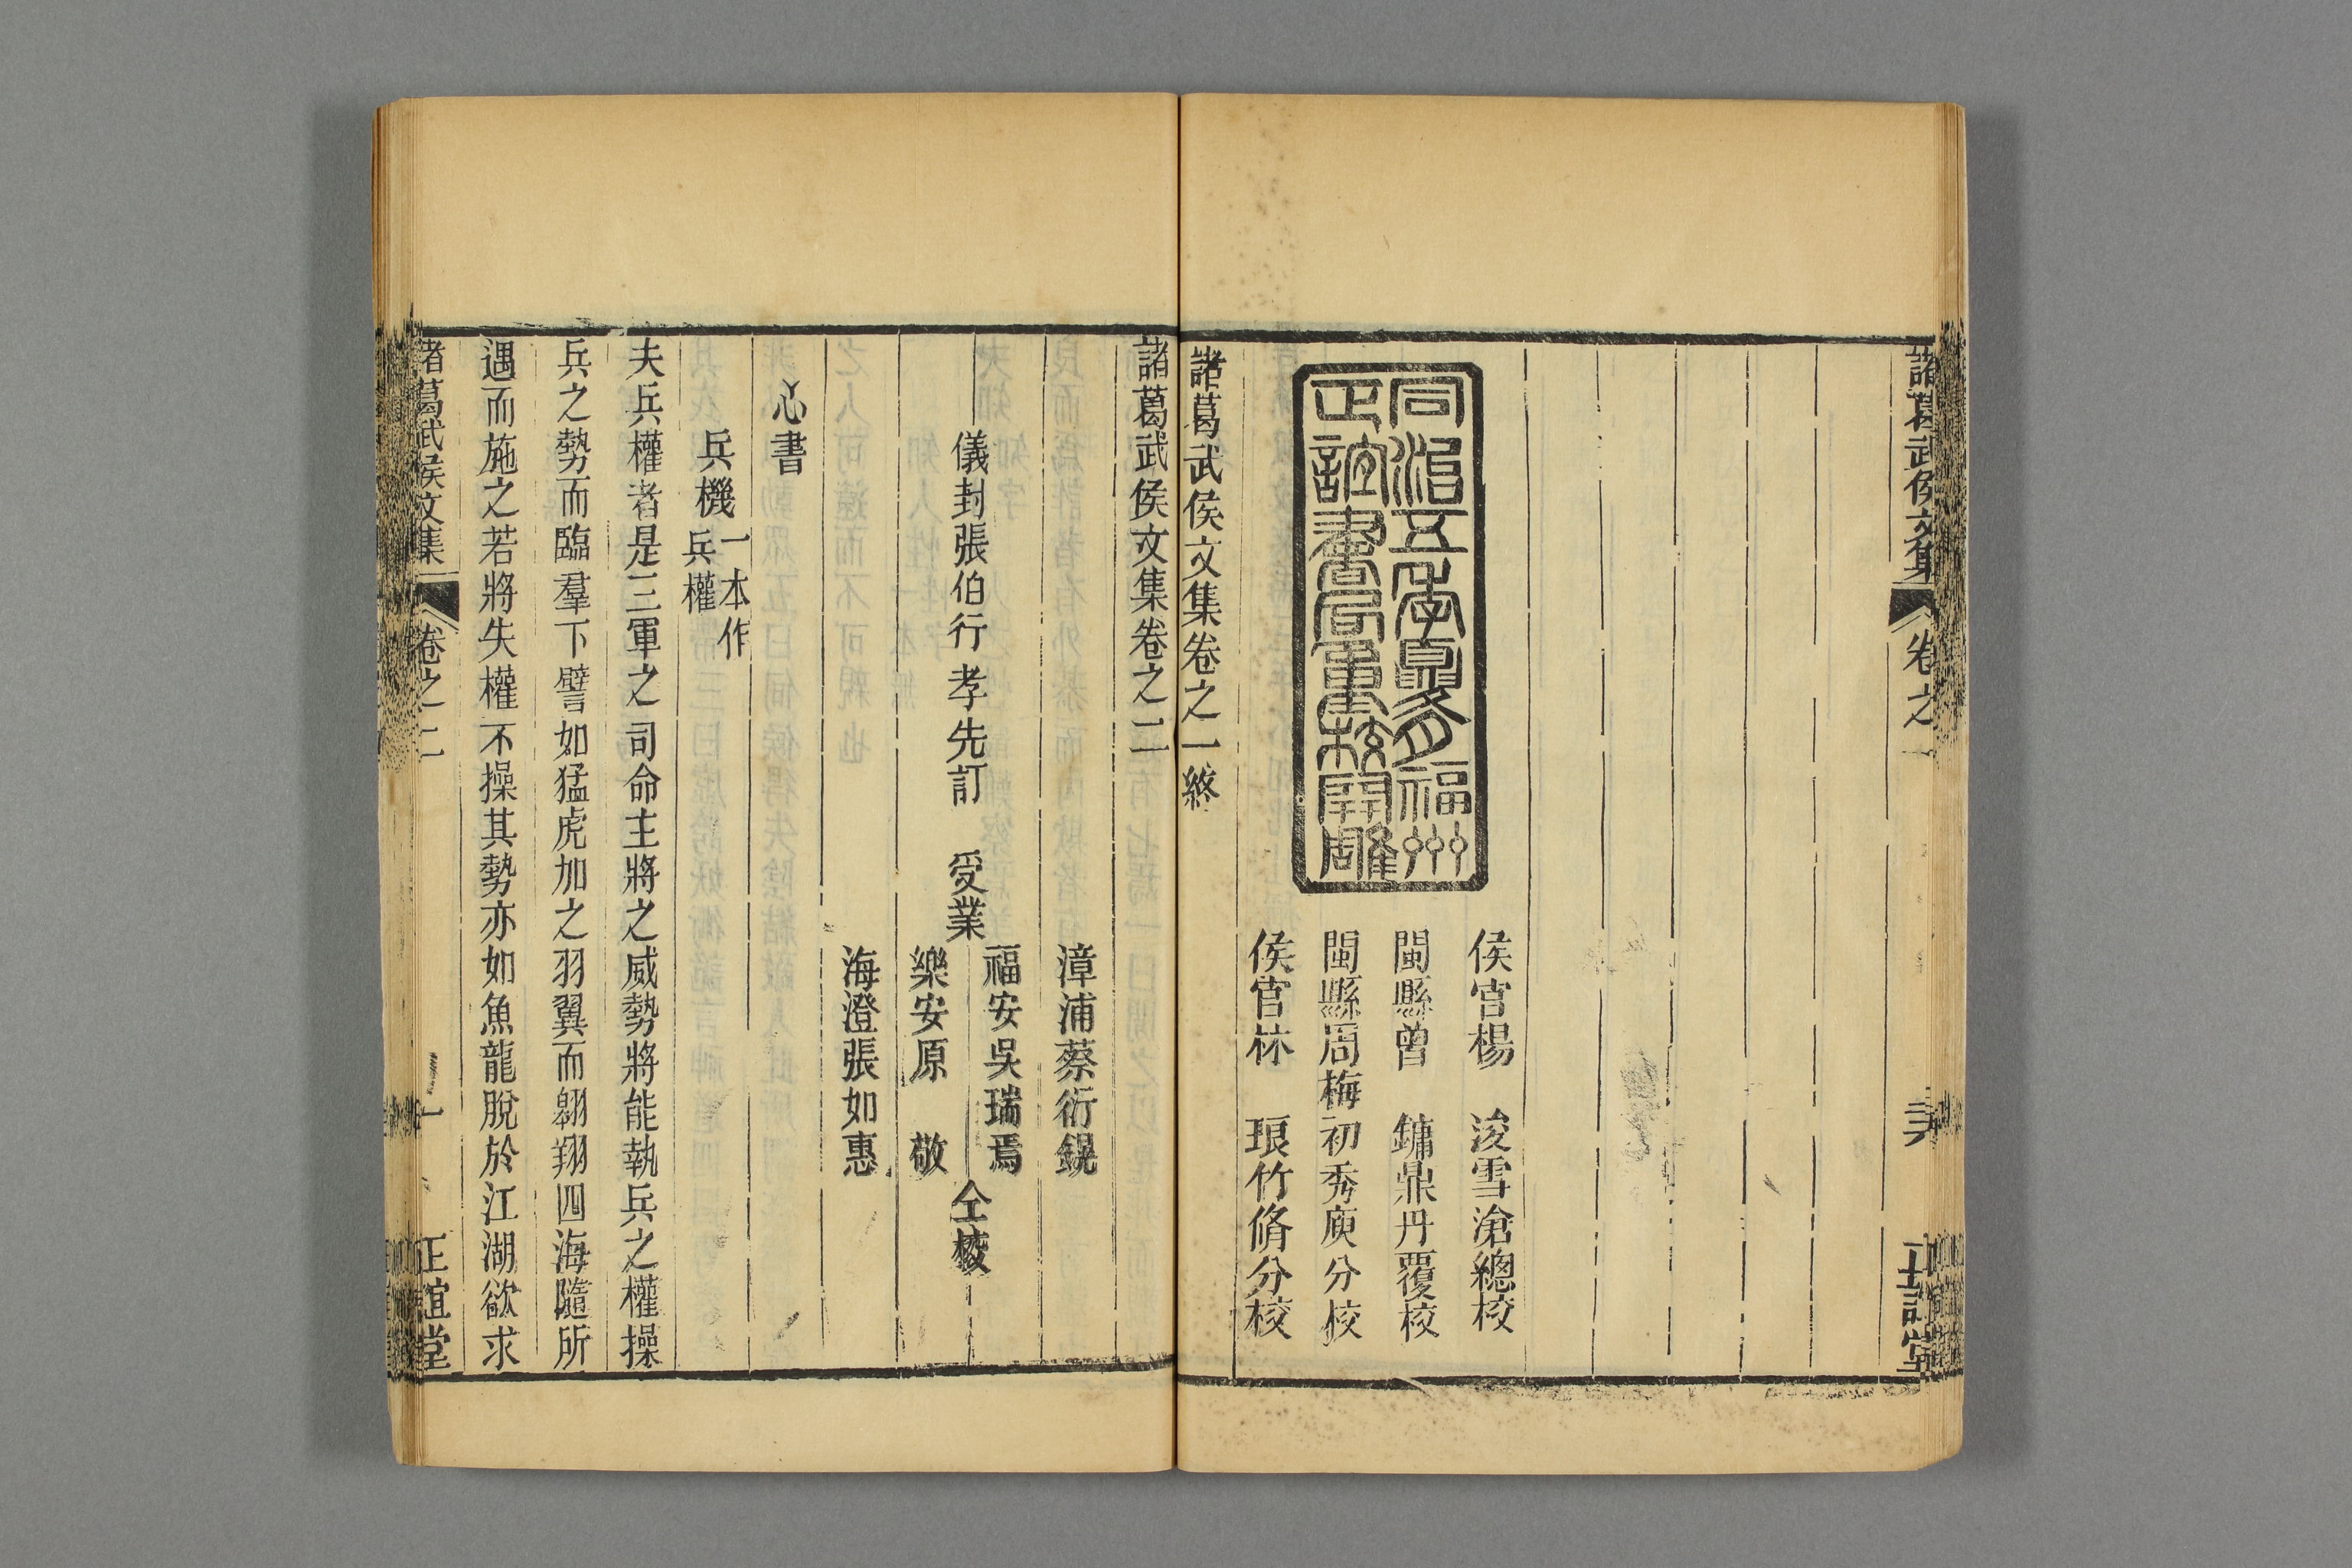 諸葛武侯文集 卷之一 正誼堂
同治五年夏月福州
正誼書局重校開雕
侯官楊 浚雪滄總校
閩縣曾 鏞鼎丹覆校
閩縣周梅初秀庾分校
侯官林 琅竹脩分校
諸葛武侯文集卷之一終
諸葛武侯文集卷之二
儀封張伯行孝先訂 受業
漳浦蔡衍鎤
福安吳瑞焉
樂安原 敬
海澄張如惠
仝校
心書
兵機 一本作兵權
夫兵權者是三軍之司命主將之威勢將能執兵之權操
兵之勢而臨羣下譬如猛虎加之羽翼而翱翔四海隨所
遇而施之若將失權不操其勢亦如魚龍脫於江湖欲求
諸葛武侯文集 卷之二 一 正誼堂